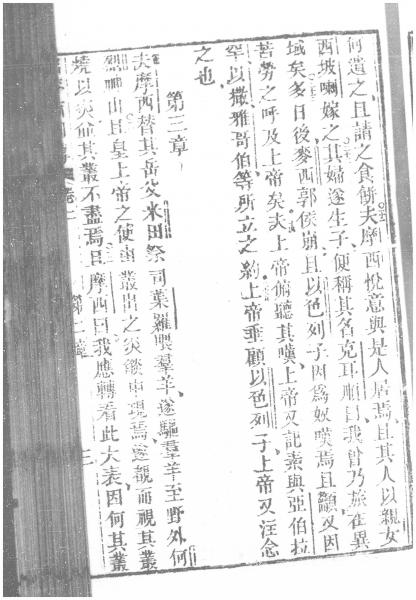 何遺之、且請之食餅、夫摩西悅意與是人居焉、且其人以親女
西坡喇嫁之、其婦遂生子、便稱其名克耳順曰、我曾乃旅在異
域矣、多日後麥西郭侯崩、且以色列子因爲奴嘆焉、且籲、又因
苦勞之呼及上帝矣、夫上帝俯聽其嘆、上帝又記素與亞伯拉
罕、以撒雅哥伯等所立之約、上帝垂顧以色列子、上帝又注念
之也、
第三章
夫摩西替其岳父米田祭司葉羅羣羊、遂驅羣羊至野外何
山、且皇上帝之使由叢出之炎燄中現焉、遂觀而視其叢
燒以炎而其叢不盡焉、且摩西曰、我應轉看此大表、因何其叢